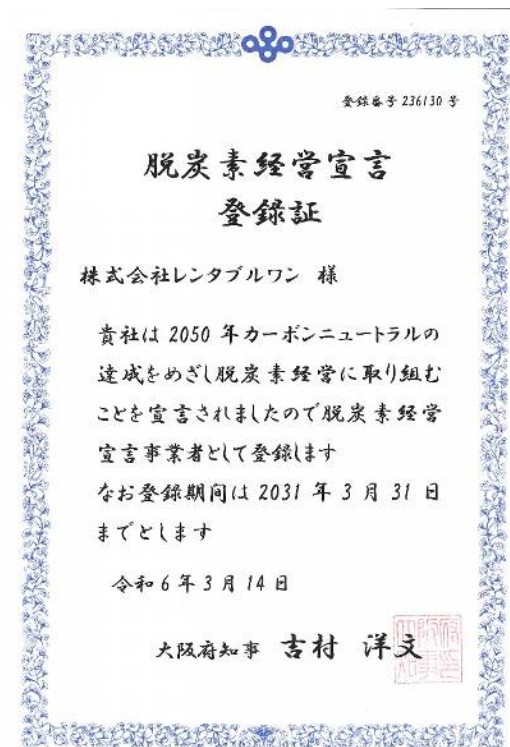 登録番号 236130 号
脱炭素経営宣言
登録証
株式会社レンタブルワン 様
貴社は 2050 年カーボンニュートラルの
達成をめざし脱炭素経営に取り組む
ことを宣言されましたので脱炭素経営
宣言事業者として登録します
なお登録期間は 2031 年 3 月 31 日
までとします
令和 6 年 3 月 14 日
大阪府知事 吉村 洋文